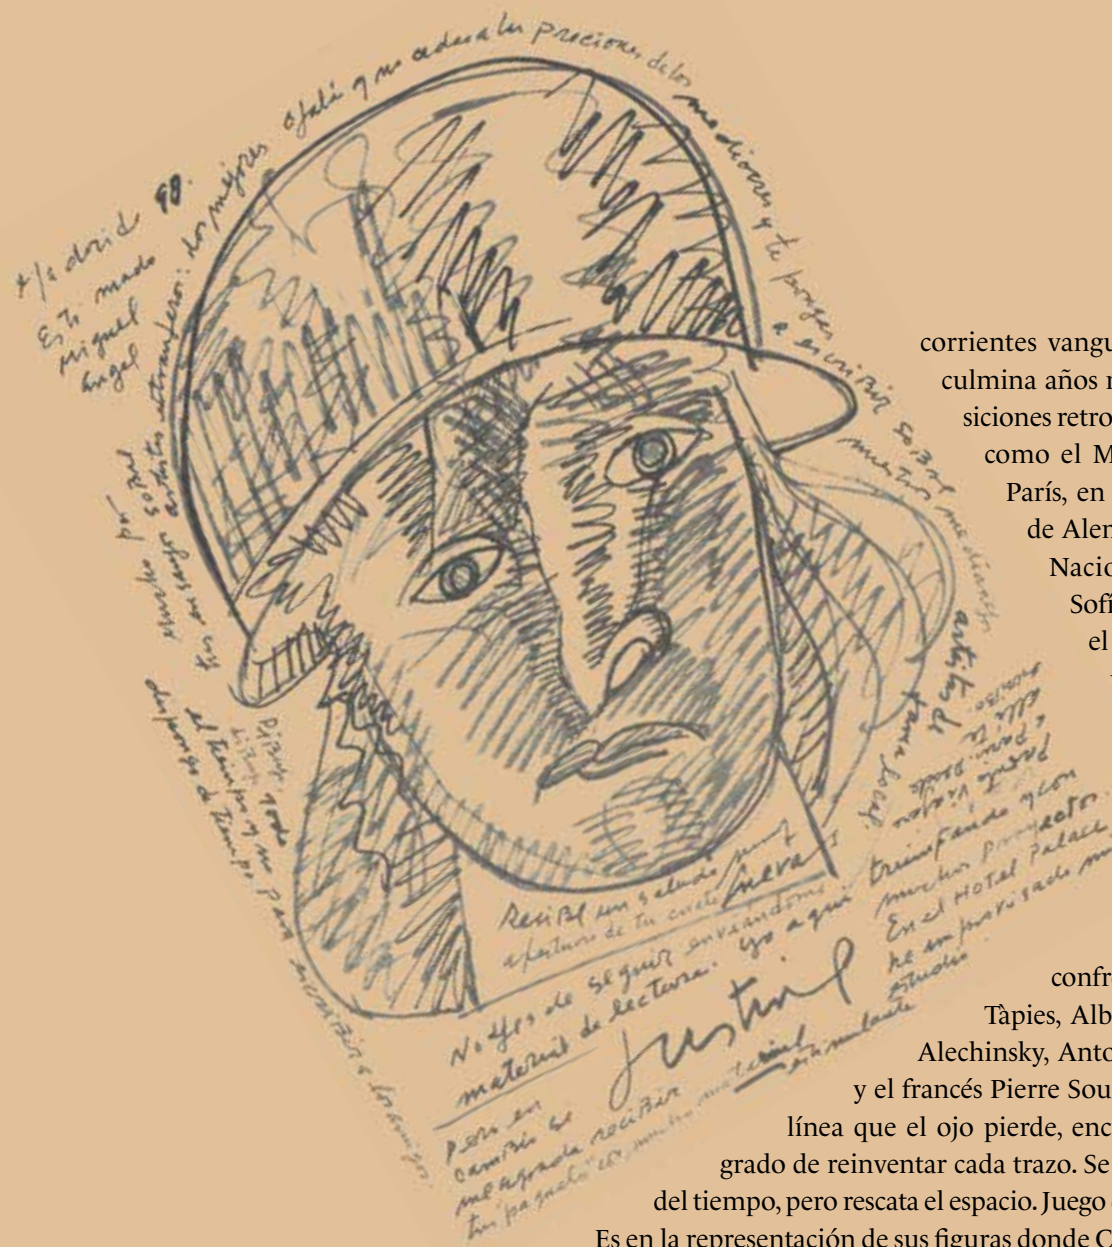 Madrid 98.
Estimado
Miguel
Angel
ojalá y no cedas a las preciones de los mediocres y te pongas
a escribir sobre
nuestros mediocres
artistas de
fama local.
tus ensayos sobre artistas extranjeros: los mejores
dispongo de tiempo para escribir a los amigos.
Dibujo todo
el tiempo y no
Recibe un saludo muy
apertura de tu nueva
No dejes de seguir enviandome
material de lectura. yo aquí triunfando y con
muchos proyectos.
En el Hotel Palace
he improvisado mi
estudio
Justin
pero en
cambio se
me agrada recibir
tu paquete con mucho material estimulante
corrientes vangu
culmina años
siciones retro
como el M
París, en
de Alen
Nacio
Sofí
el
confr
Tàpies, Alb
Alechinsky, Anto
y el francés Pierre Sou
línea que el ojo pierde, enc
grado de reinventar cada trazo. Se
del tiempo, pero rescata el espacio. Juego
Es en la representación de sus figuras donde C